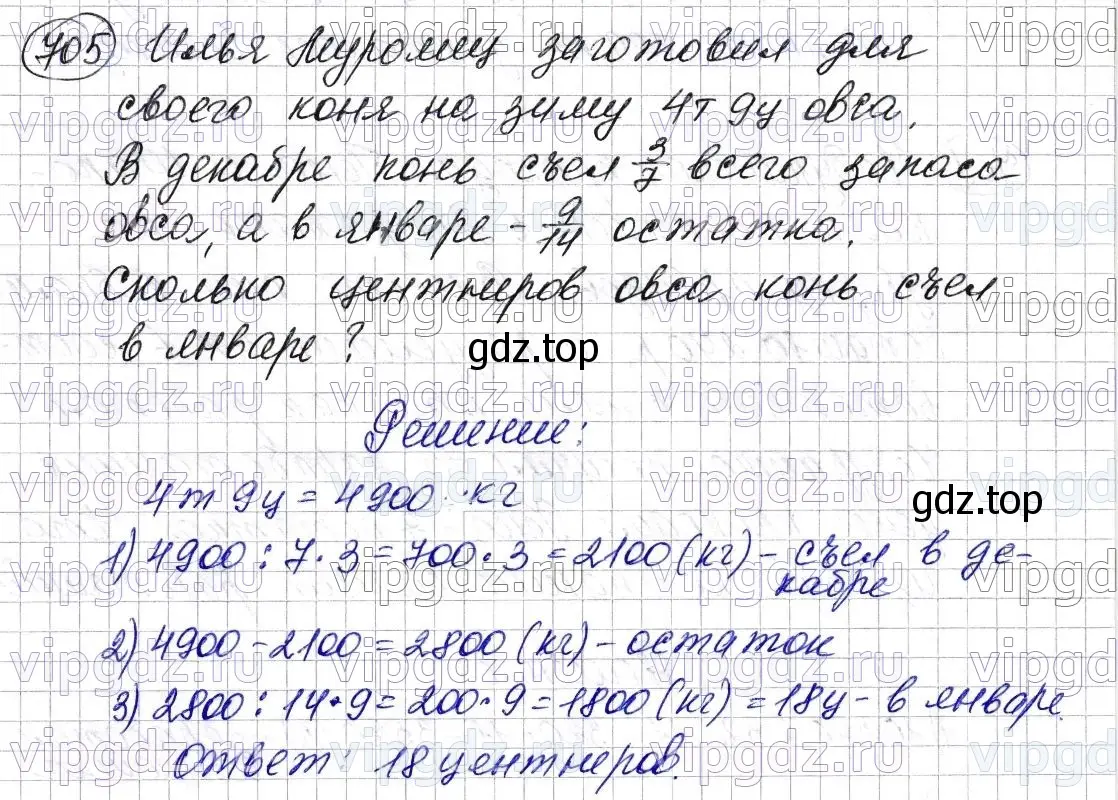 705 Илья Муромец заготовил для
своего коня на зиму 4т 9ц овса.
В декабре конь съел 3/7 всего запаса
овса, а в январе - 9/14 остатка.
Сколько центнеров овса конь съел
в январе?
gdz.top
Решение:
4т 9ц = 4900 кг
gdz.top
1) 4900 : 7 · 3 = 700 · 3 = 2100 (кг) - съел в де-
кабре
2) 4900 - 2100 = 2800 (кг) - остаток
3) 2800 : 14 · 9 = 200 · 9 = 1800 (кг) = 18ц - в январе.
Ответ: 18 центнеров.